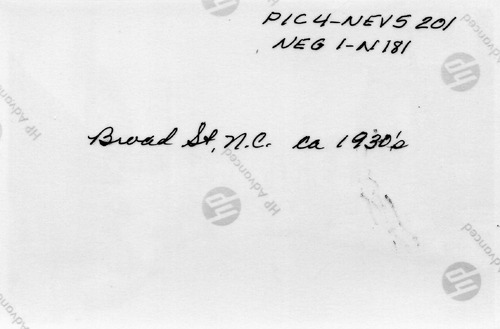 PIC 4-NEV5 201
NEG 1-N 181
Broad St, N.C. ca 1930's
hp
HP Advanced
hp
HP Advanced
hp
HP Advanced
hp